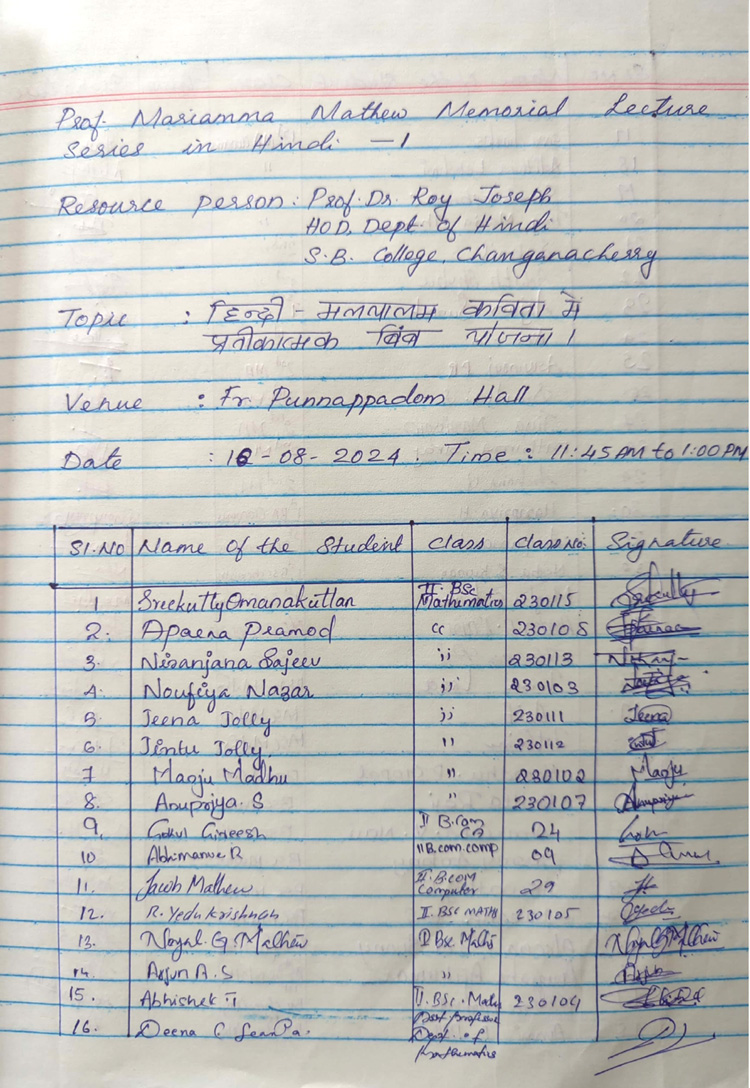 Prof. Mariamma Mathew Memorial Lecture
Series in Hindi - 1
Resource person : Prof. Dr. Roy Joseph
HOD, Dept. of Hindi
S.B. College, Changanacherry
Topic : हिन्दी - मलयालम कविता में
प्रतीकात्मक बिंब योजना ।
Venue : Fr. Punnappadom Hall
Date : 16-08-2024. Time : 11:45 AM to 1:00 PM
Sl.No Name of the Student Class Class No: Signature
1 Sreekutty Omanakuttan II. BSc Mathematics 230115
2. Aparna Pramod " 230108
3. Niranjana Sajeev " 230113
4. Noufiya Nazar " 230103
5 Jeena Jolly " 230111 Jeena
6. Jintu Jolly " 230112
7 Magju Madhu " 230102 Magju
8. Anupriya. S " 230107
9. Gokul Gireesh II B.Com CA 24
10 Abhimanue R II B.com.comp 09
11. Jacob Mathew II. B.COM Computer 29
12. R. Yedu Krishnan II. BSC MATHS 230105
13. Noyal. G. Mathew II Bsc. Maths Noyal G Mathew
14. Arjun A.S "
15. Abhishek T II. BSc. Maths 230104
16. Deena C
Dept. of
Mathematics